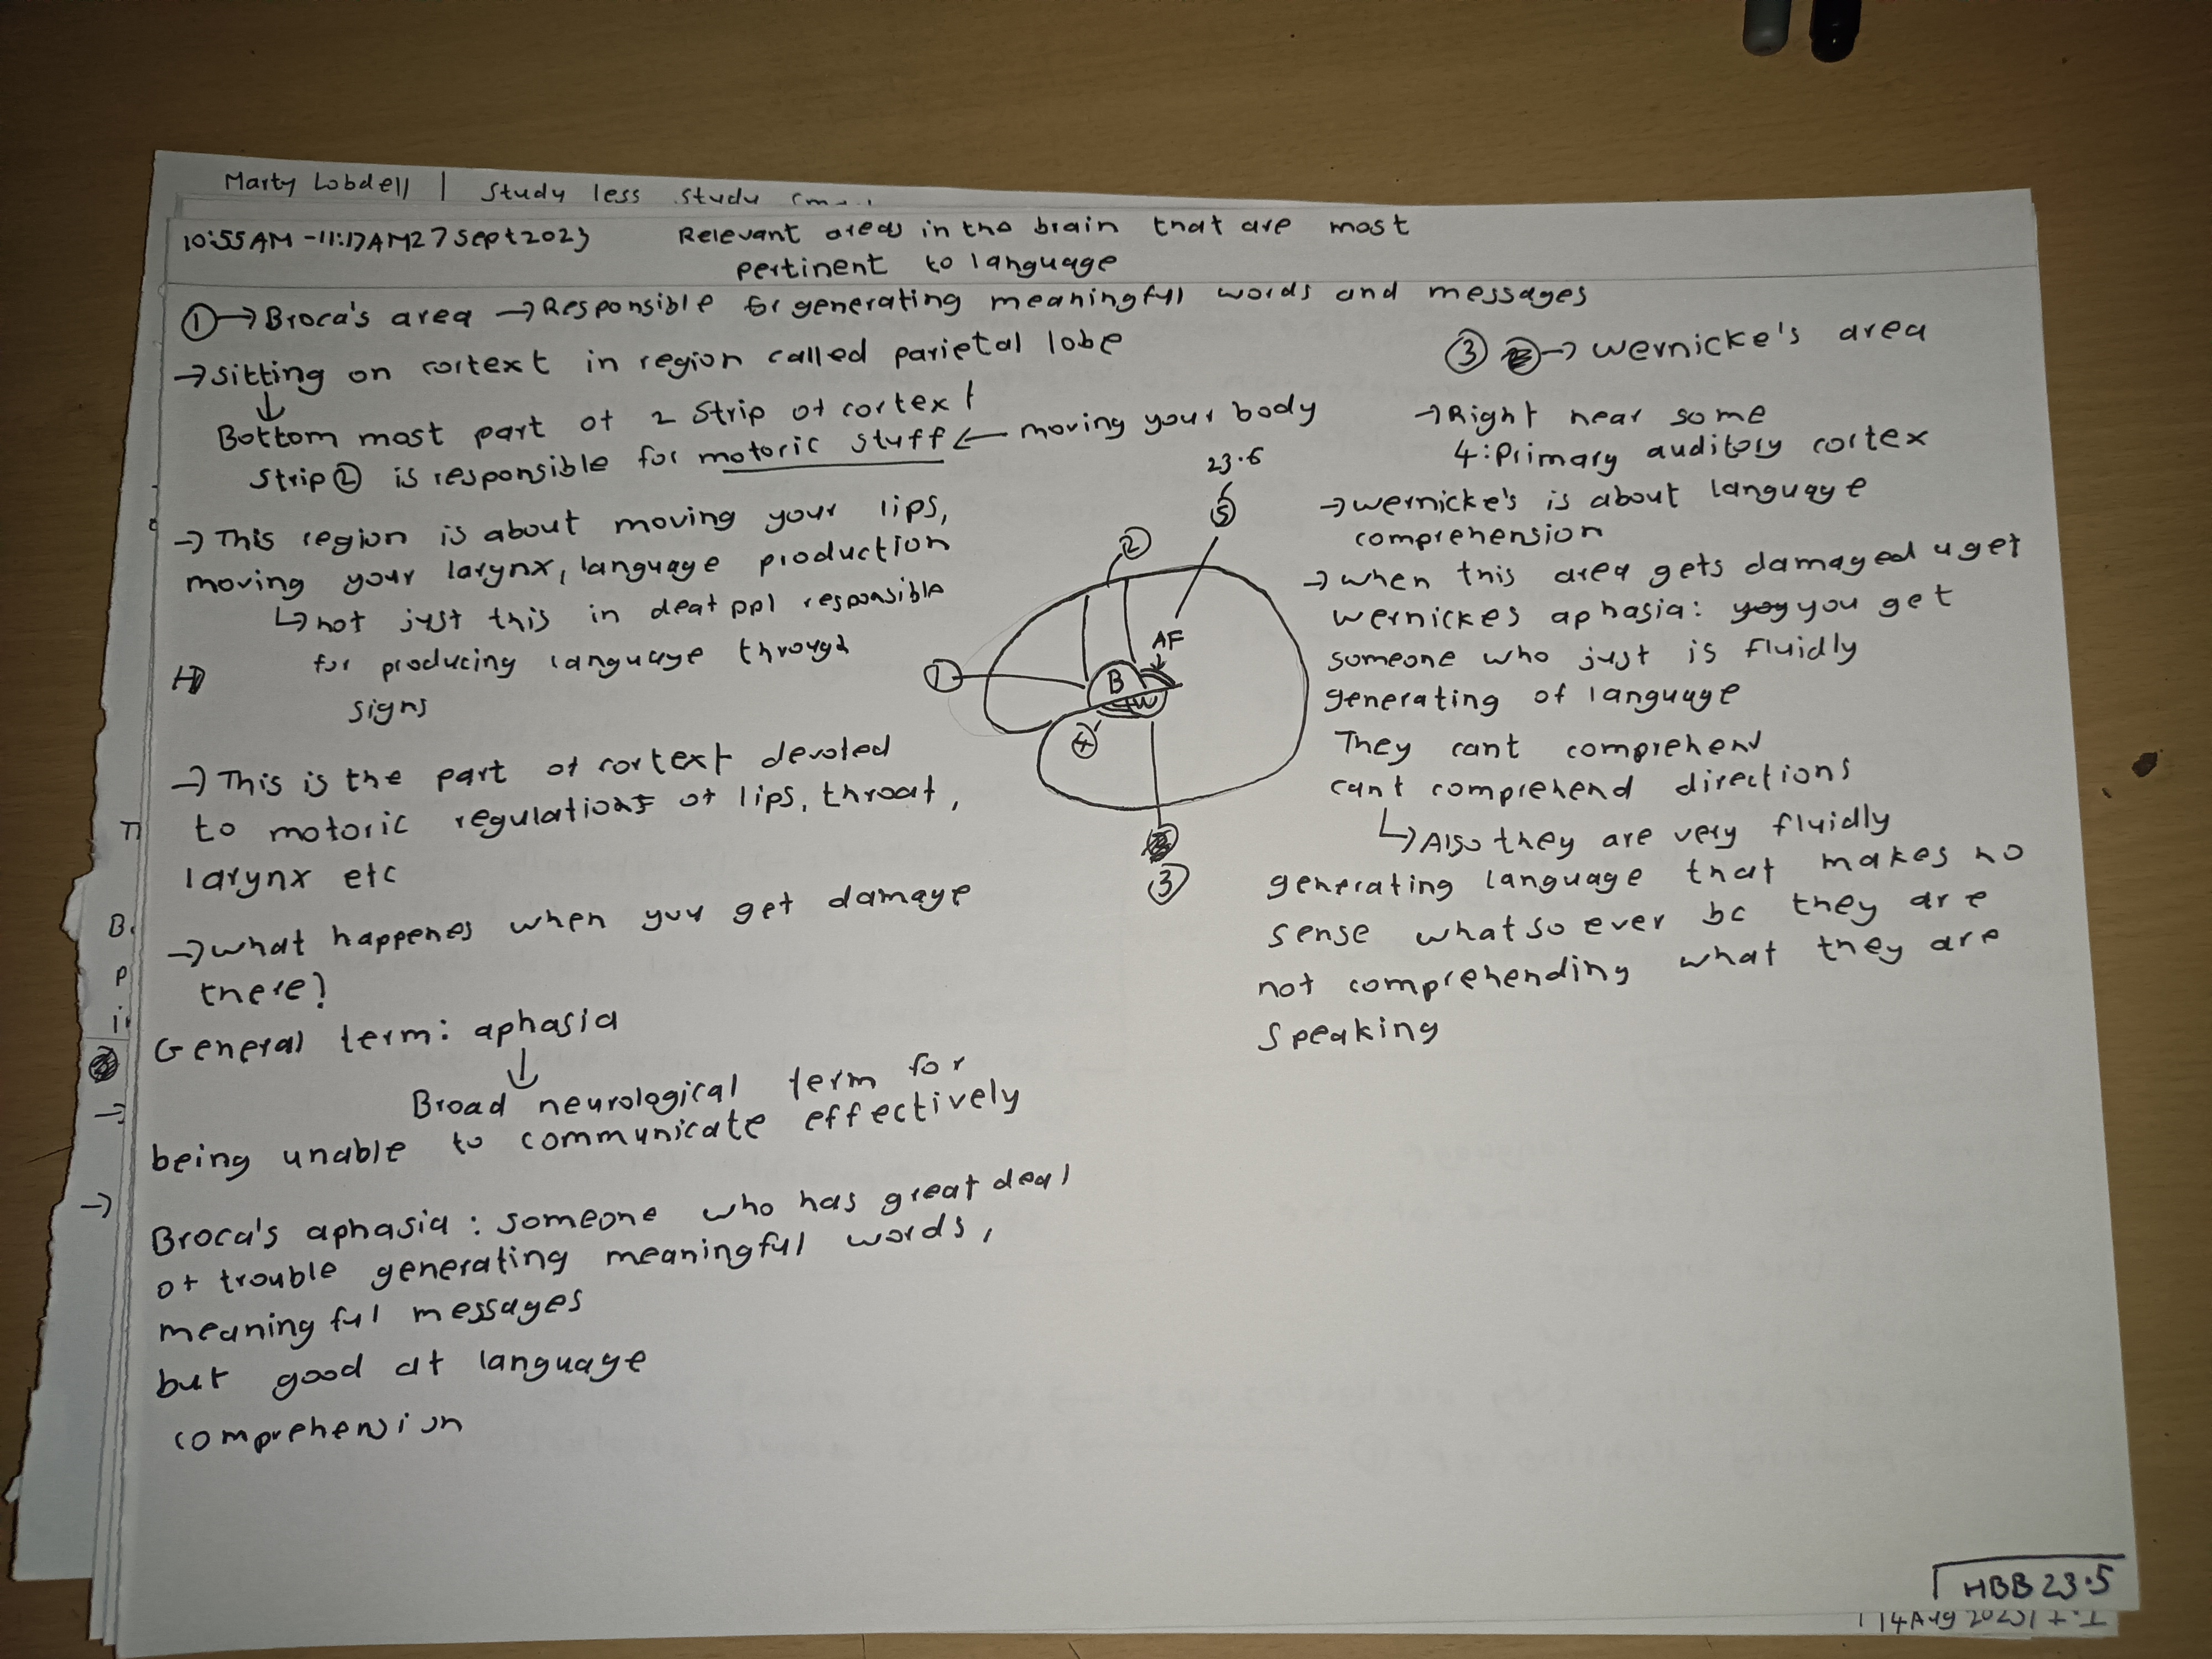 Marty Lobdell | Study less study
10:55AM-11:17AM 27 Sept 2023
Relevant areas in the brain that are most
pertinent to language
① → Broca's area → Responsible for generating meaningful words and messages
→ sitting on cortext in region called parietal lobe
↓
Bottom most part of 2 strip of cortext
Strip ② is responsible for motoric stuff ← moving your body
→ This region is about moving your lips,
moving your larynx, language production
↳ not just this in deaf ppl responsible
for producing language through
signs
→ This is the part of cortext devoted
to motoric regulations of lips, throat,
larynx etc
→ what happenes when you get damage
there?
General term: aphasia
↓
Broad neurological term for
being unable to communicate effectively
Broca's aphasia: someone who has great deal
of trouble generating meaningful words,
meaningful messages
but good at language
comprehension
23.6
⑤
②
AF
①
B
W
④
③
③ → wernicke's area
→ Right near some
4: Primary auditory cortex
→ wernicke's is about language
comprehension
→ when this area gets damaged u get
wernickes aphasia: you get
someone who just is fluidly
generating of language
They cant comprehend
can't comprehend directions
↳ Also they are very fluidly
generating language that makes no
sense what so ever bc they are
not comprehending what they are
speaking
HBB 23.5
14Aug 2023